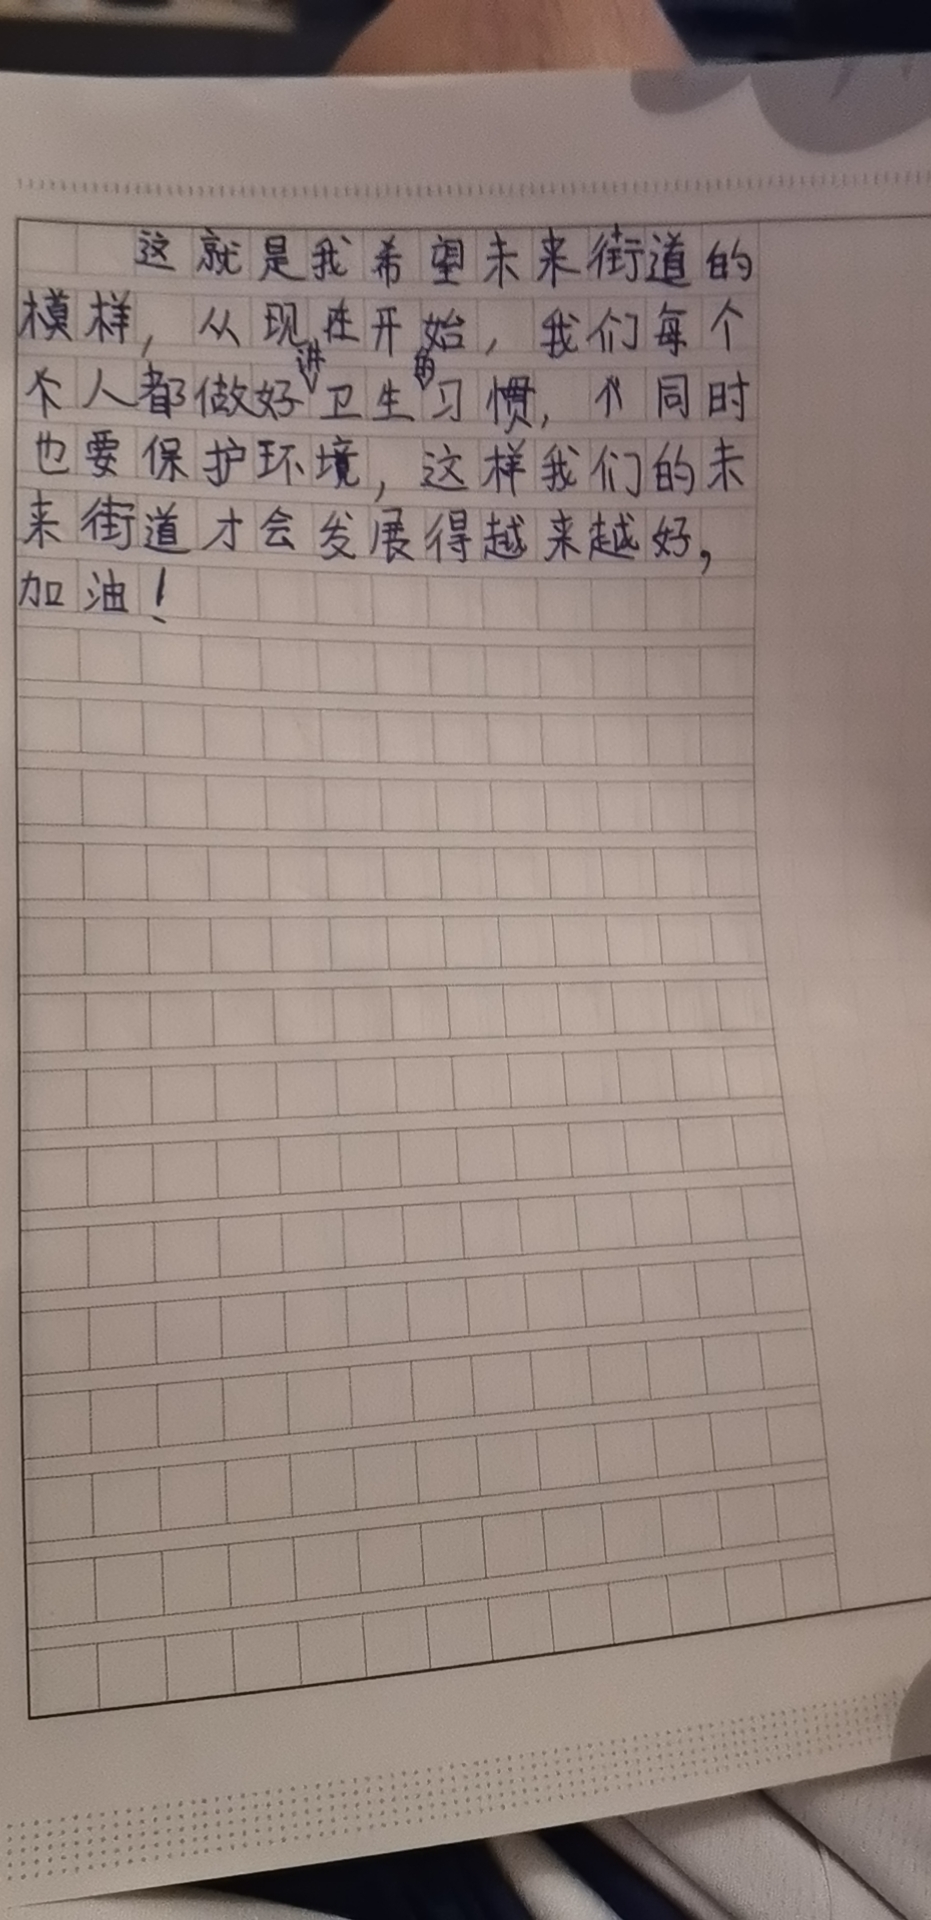 这就是我希望未来街道的
模样，从现在开始，我们每个
个人都做好讲卫生的习惯，个同时
也要保护环境，这样我们的未
来街道才会发展得越来越好，
加油！